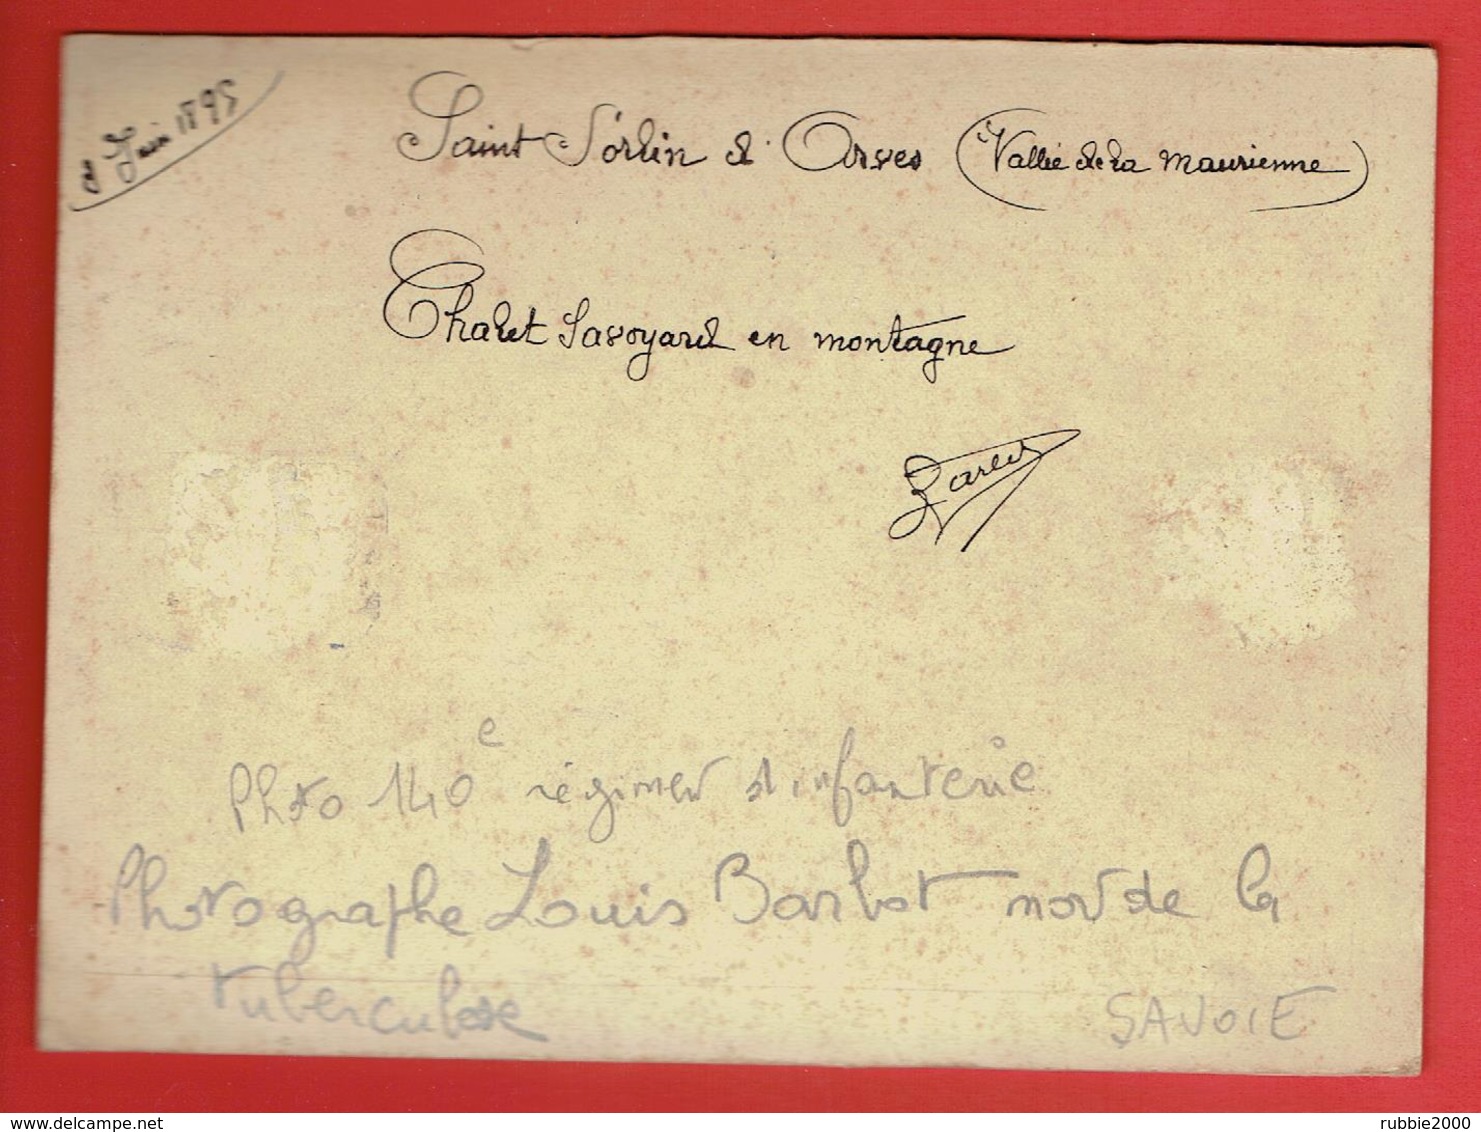 8 Juin 1895
Saint Sorlin d'Arves (Vallée de la Maurienne)
Chalet Savoyard en montagne
Photo 140e régiment d'infanterie
Photographe Louis Barbot mort de la
tuberculose
SAVOIE
rubbie2000